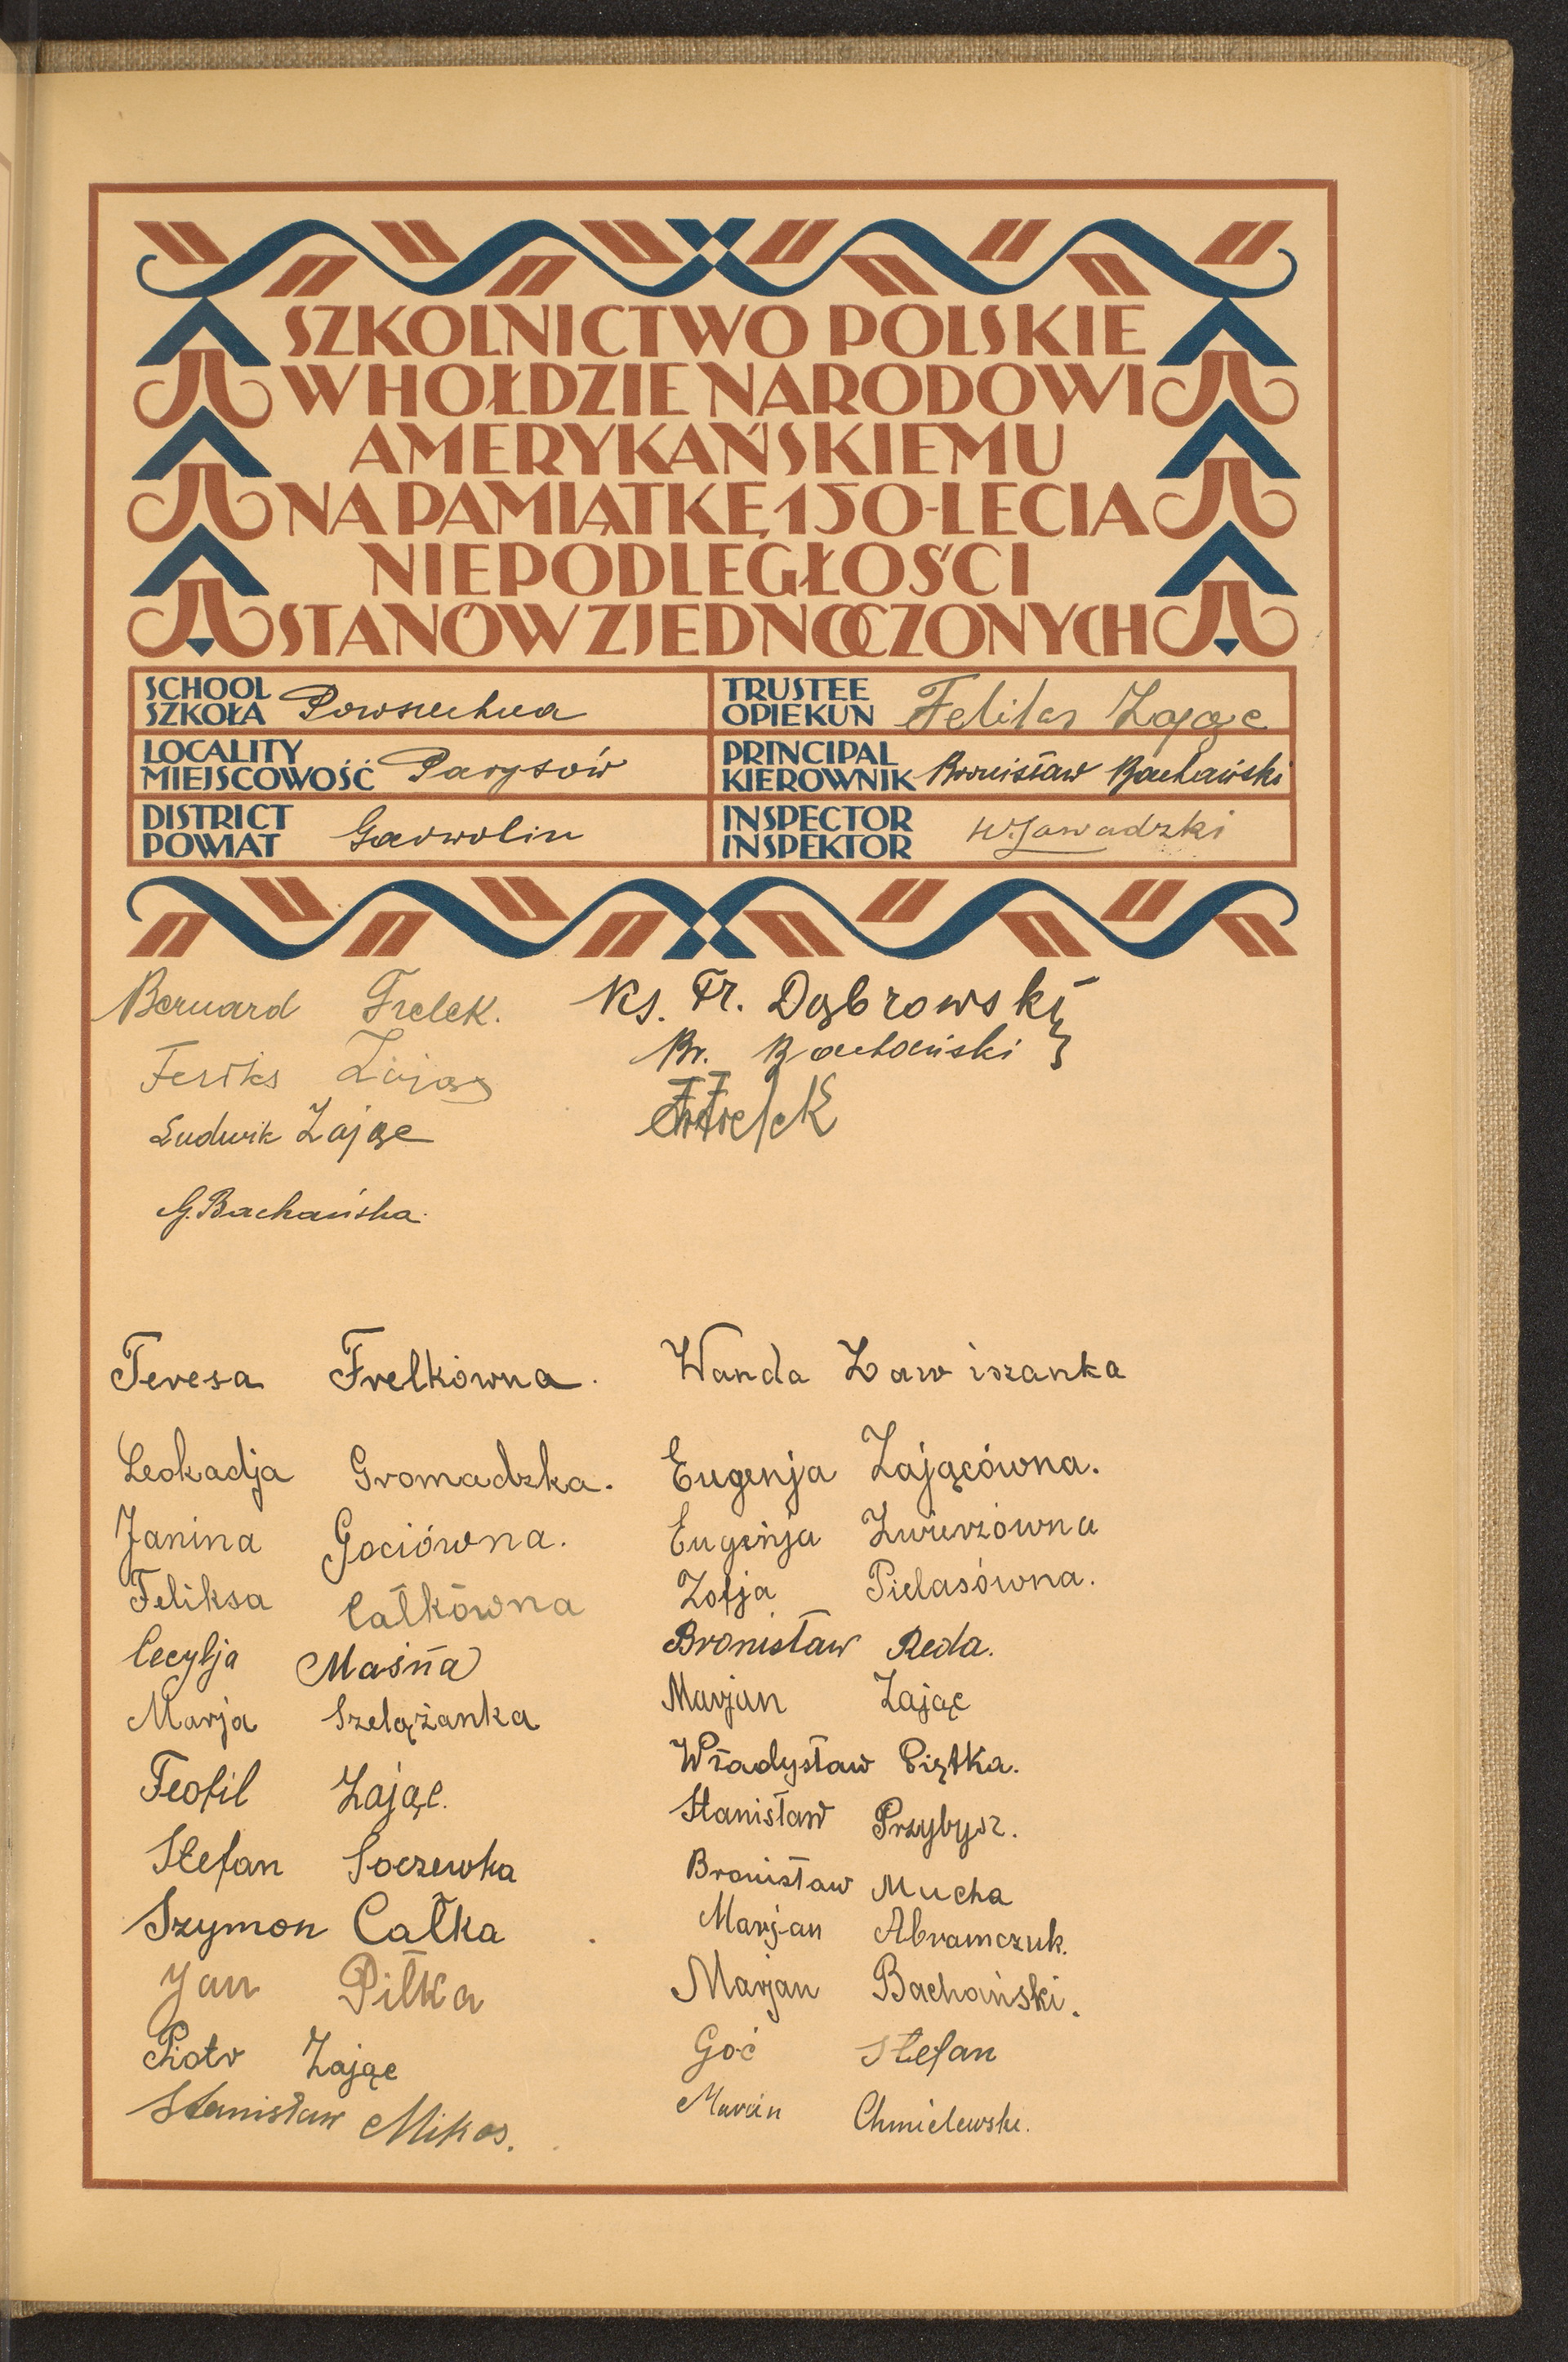 SZKOLNICTWO POLSKIE
W HOŁDZIE NARODOWI
AMERYKAŃSKIEMU
NA PAMIĄTKĘ 150-LECIA
NIEPODLEGŁOŚCI
STANÓW ZJEDNOCZONYCH
SCHOOL
SZKOŁA Powszechna
TRUSTEE
OPIEKUN Zając
LOCALITY
MIEJSCOWOŚĆ Parysów
PRINCIPAL
KIEROWNIK Bronisław Bachański
DISTRICT
POWIAT Garwolin
INSPECTOR
INSPEKTOR W. Zawadzki
Bernard Frelek.
Feliks Zając
Ludwik Zając
G. Bachańska.
Ks. Fr. Dąbrowski
Br. Bachański
Frelek
Teresa Frelkówna.
Leokadja Gromadzka.
Janina Gociówna.
Feliksa Całkówna
Cecylja Maśna
Marja Szelążanka
Teofil Zając.
Stefan Soczewka
Szymon Całka
Jan Piłka
Piotr Zając
Stanisław Mikos.
Wanda Zawiszanka
Eugenja Zającówna.
Eugenja Zwierzówna
Zofja Pielasówna.
Bronisław Reda.
Marjan Zając
Władysław Piętka.
Stanisław Przybysz.
Bronisław Mucha
Marjan Abramczuk.
Marjan Bachański.
Goć Stefan
Marcin Chmielewski.